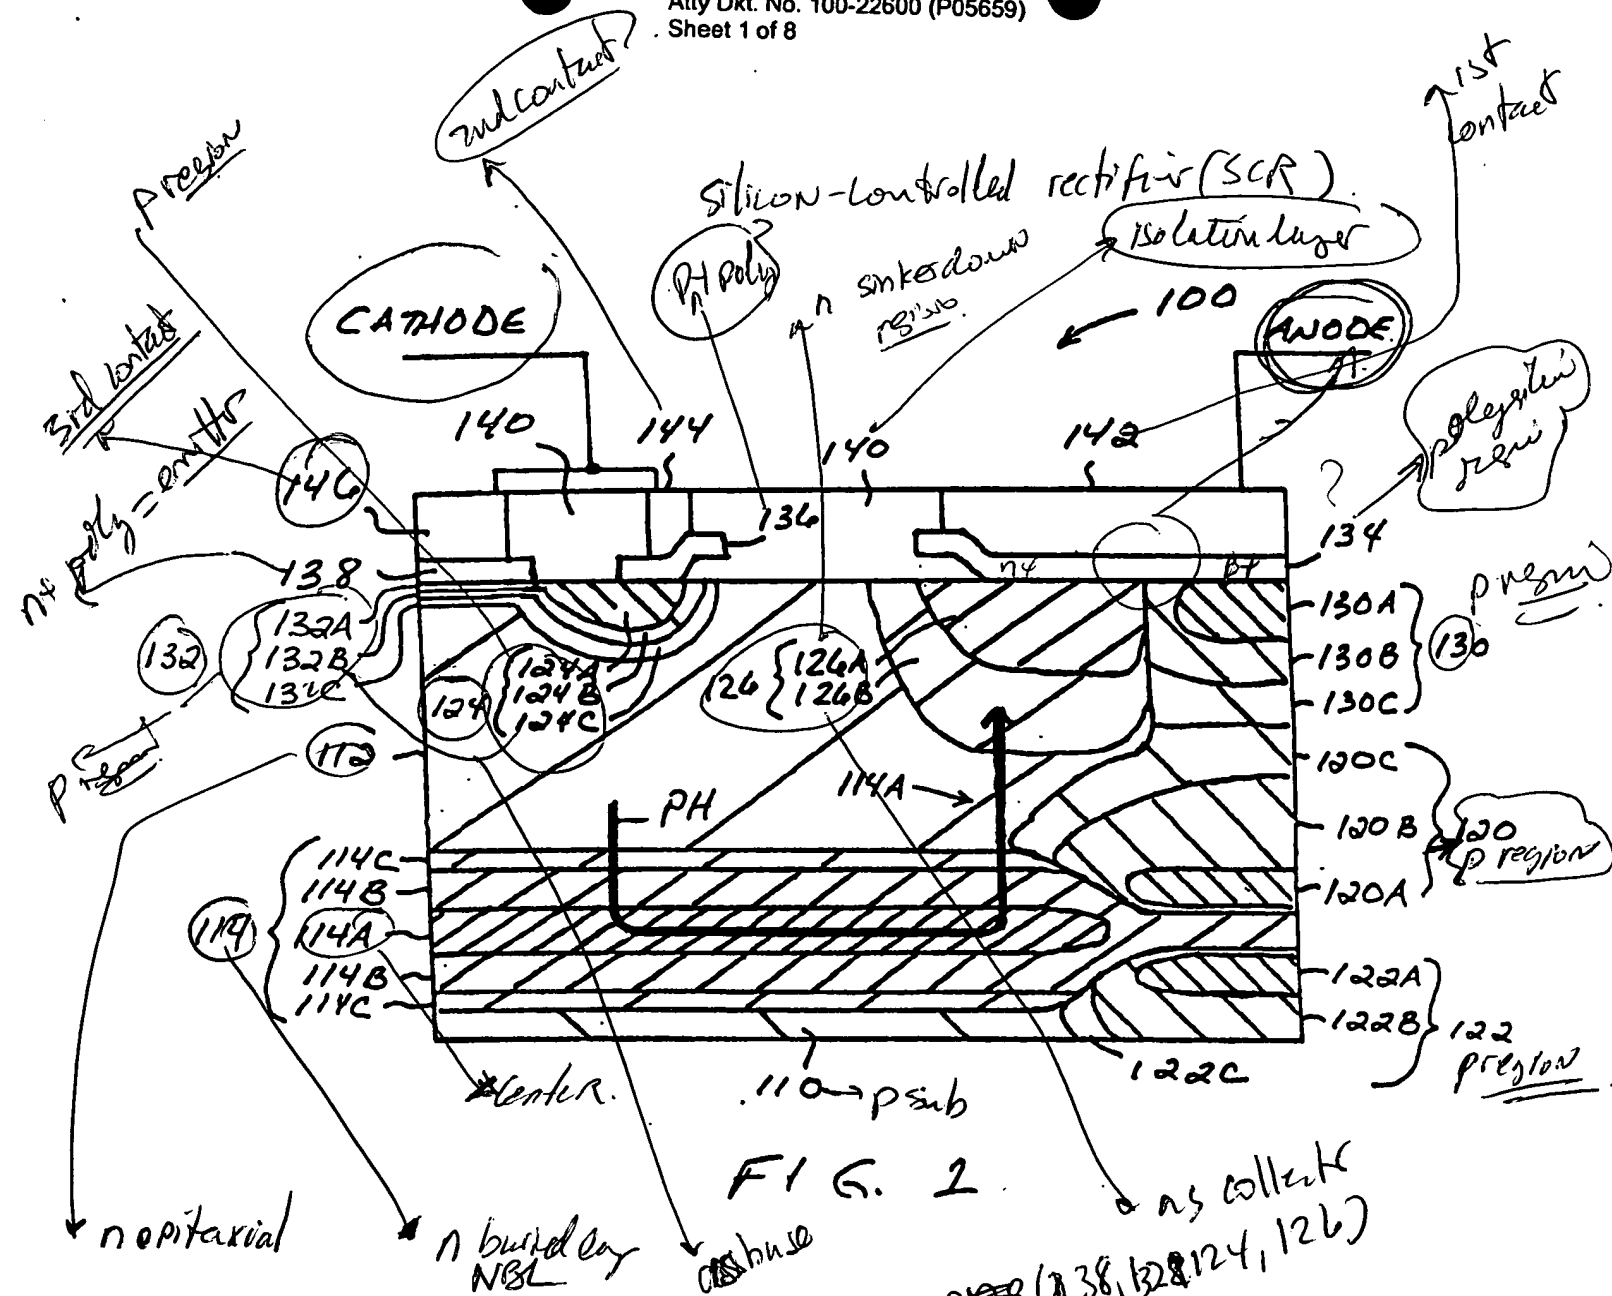 Atty Dkt. No. 100-22600 (P05659)
Sheet 1 of 8
2nd contact
1st
contact
p region
silicon-controlled rectifier (SCR)
isolation layer
p+ poly
n
n sinker down
region
100
CATHODE
ANODE
3rd contact
140
144
140
142
polysilicon
region
146
?
136
134
n+ poly = emitter
138
n+
p+
p region
132A
132B
132C
132
124A
124B
124C
124
126
126A
126B
130A
130B
130C
130
p region
112
PH
114A
120C
120B
120A
120
p region
114C
114B
114A
114B
114C
114
122A
122B
122
p region
122C
center
110 → p sub
FIG. 1
n epitaxial
n buried lay
NBL
base
as collector
(138, 132, 124, 126)